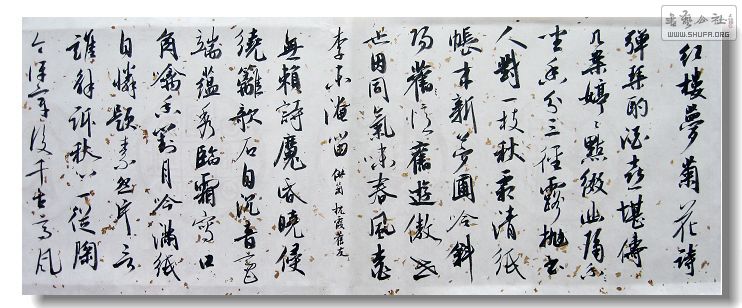 红樓夢菊花詩
彈琴酌酒喜堪儔
几案婷婷點綴幽隔
坐香分三徑露抛書
人對一枝秋霜清紙
帳来新夢圃冷斜
陽舊憶舊遊傲世
也因同氣味春風桃
李未淹留 供菊 枕霞舊友
無賴詩魔昏曉侵
繞籬欹石自沉音毫
端藴秀臨霜寫口
角噙香對月吟滿紙
自憐題素怨片言
誰解訴秋心一從陶
令評章後千古高风
书艺公社
WWW.SHUFA.ORG